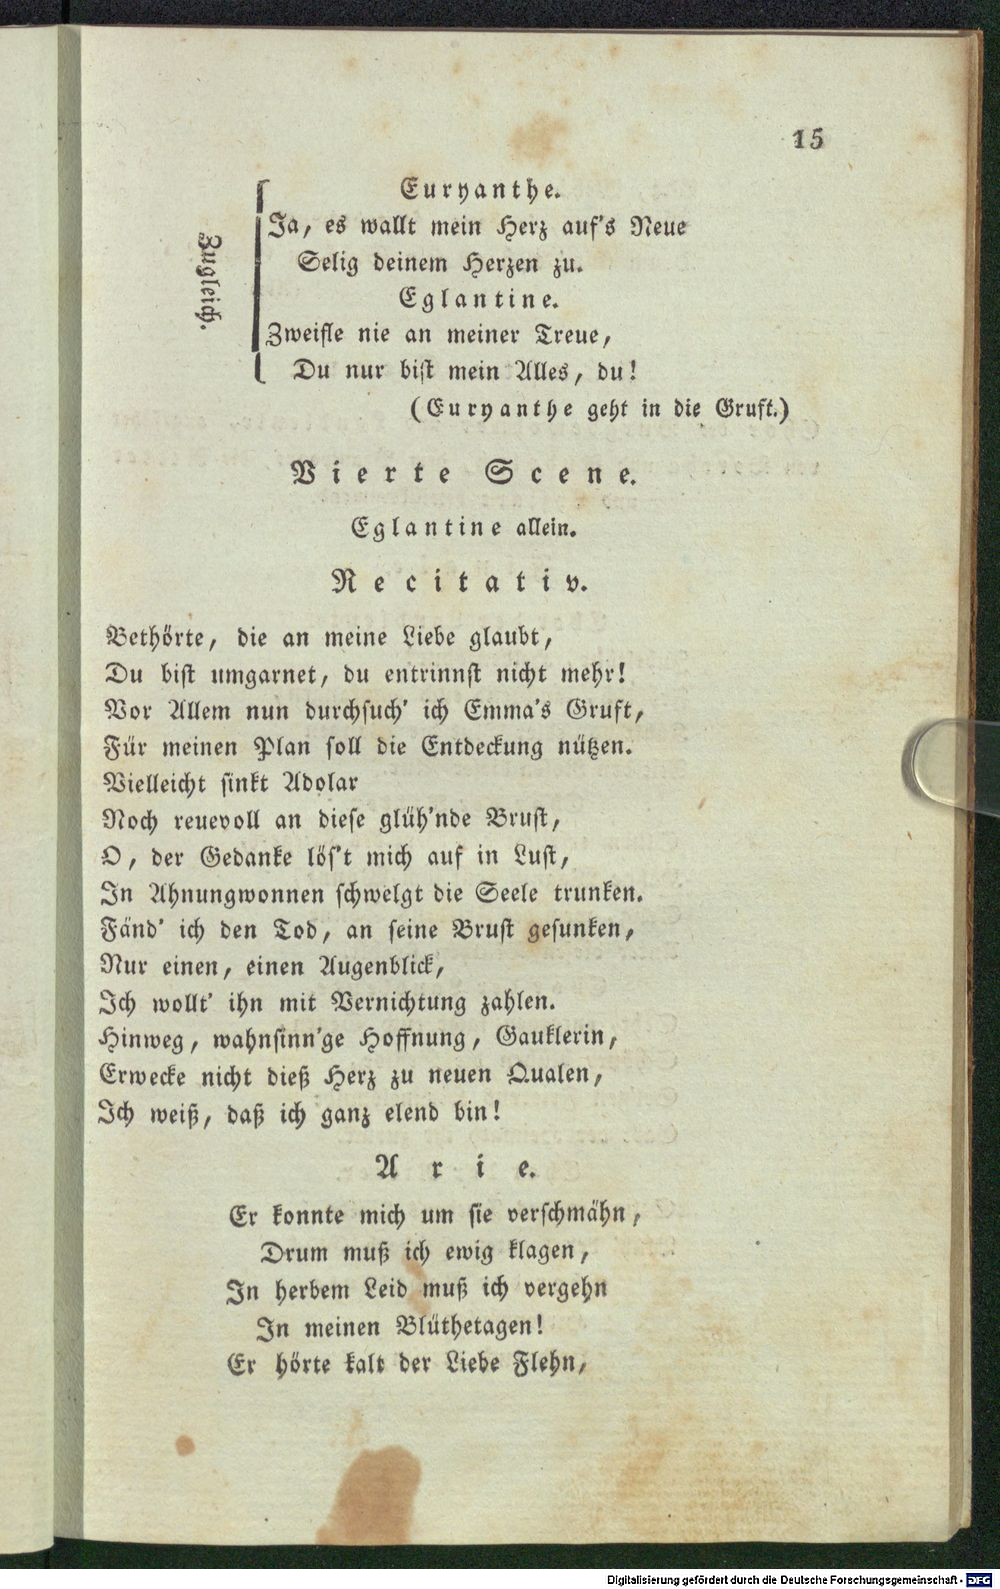 15
Euryanthe.
Ja, es wallt mein Herz auf's Neue
Selig deinem Herzen zu.
Eglantine.
Zweifle nie an meiner Treue,
Du nur bist mein Alles, du!
Zugleich.
(Euryanthe geht in die Gruft.)
Vierte Scene.
Eglantine allein.
Recitativ.
Bethörte, die an meine Liebe glaubt,
Du bist umgarnet, du entrinnst nicht mehr!
Vor Allem nun durchsuch' ich Emma's Gruft,
Für meinen Plan soll die Entdeckung nützen.
Vielleicht sinkt Adolar
Noch reuevoll an diese glüh'nde Brust,
O, der Gedanke lös't mich auf in Lust,
In Ahnungwonnen schwelgt die Seele trunken.
Fänd' ich den Tod, an seine Brust gesunken,
Nur einen, einen Augenblick,
Ich wollt' ihn mit Vernichtung zahlen.
Hinweg, wahnsinn'ge Hoffnung, Gauklerin,
Erwecke nicht dieß Herz zu neuen Qualen,
Ich weiß, daß ich ganz elend bin!
Arie.
Er konnte mich um sie verschmähn,
Drum muß ich ewig klagen,
In herbem Leid muß ich vergehn
In meinen Blüthetagen!
Er hörte kalt der Liebe Flehn,
Digitalisierung gefördert durch die Deutsche Forschungsgemeinschaft - DFG